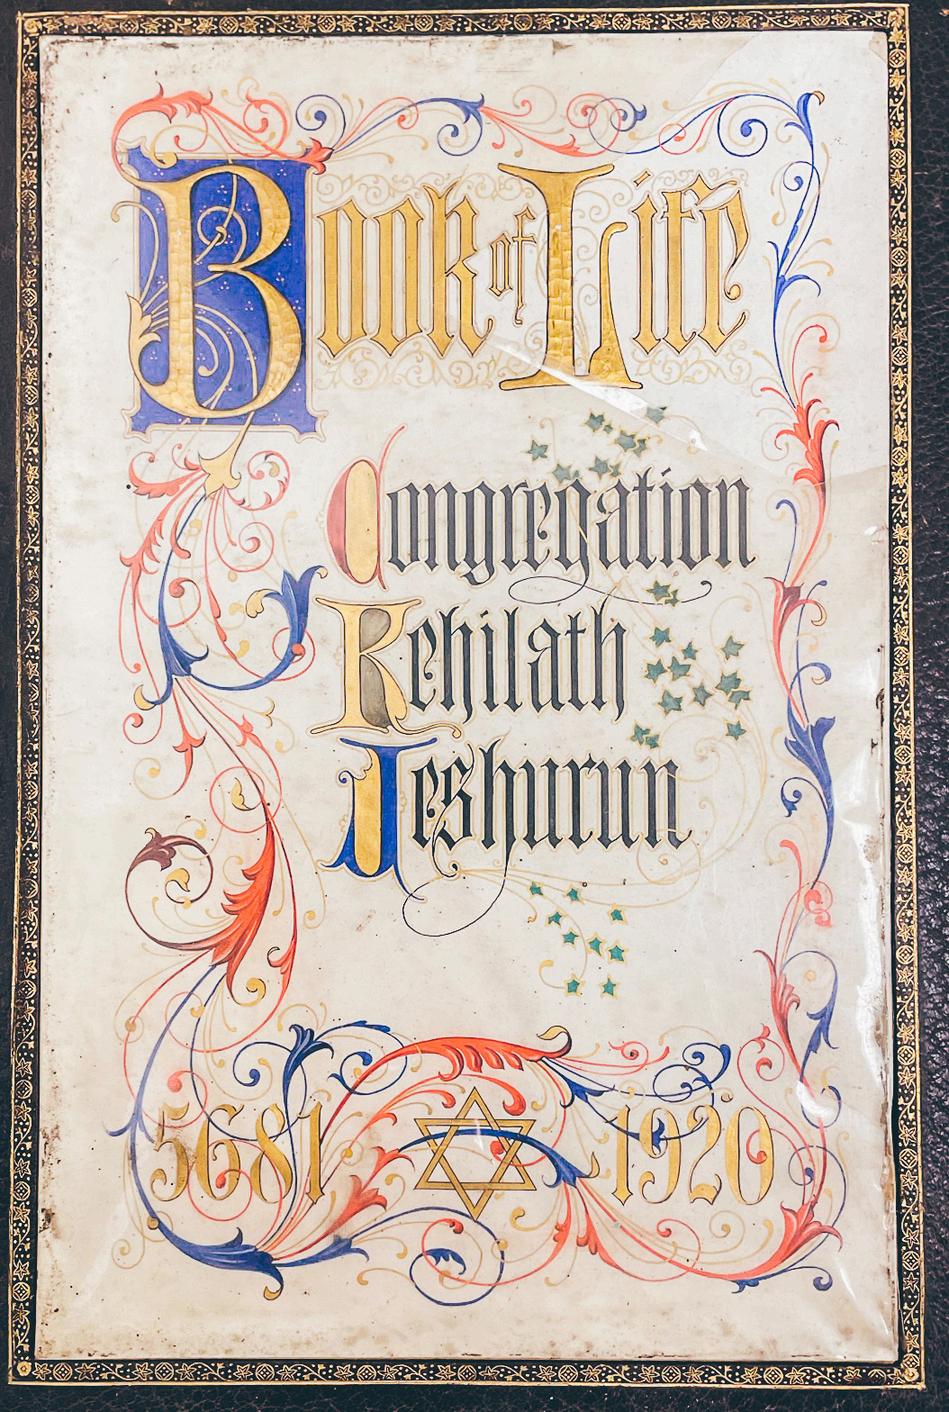 Book of Life
Congregation
Kehilath
Jeshurun
5681 1920